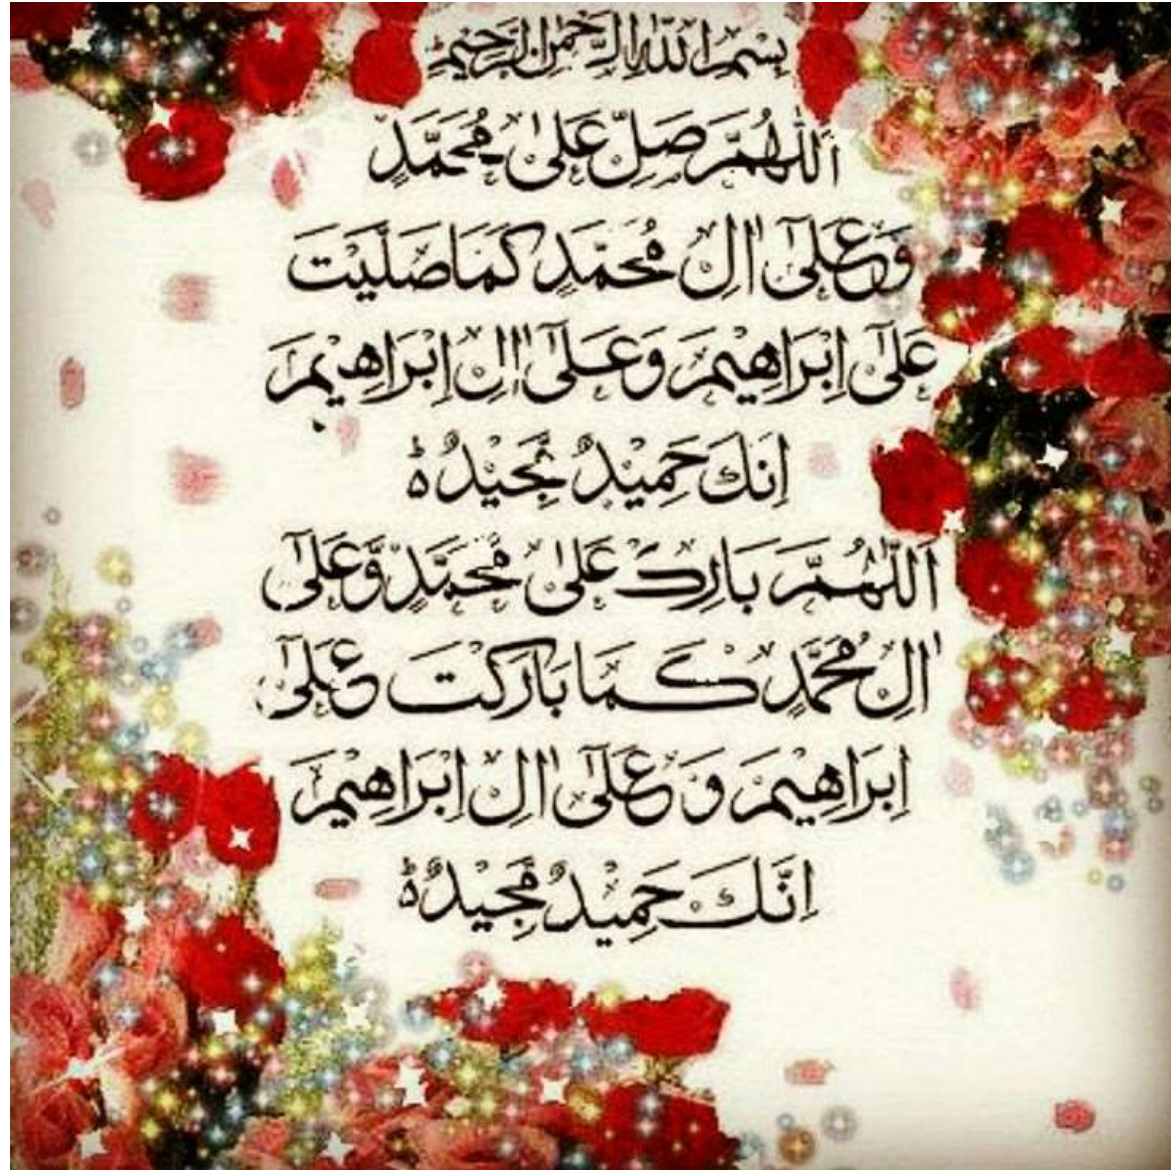 بِسْمِ اللهِ الرَّحْمٰنِ الرَّحِيْمِ
اَللّٰهُمَّ صَلِّ عَلٰى مُحَمَّدٍ
وَّعَلٰٓى اٰلِ مُحَمَّدٍ كَمَا صَلَّيْتَ
عَلٰٓى اِبْرَاهِيْمَ وَعَلٰٓى اٰلِ اِبْرَاهِيْمَ
اِنَّكَ حَمِيْدٌ مَّجِيْدٌ ؕ
اَللّٰهُمَّ بَارِكْ عَلٰى مُحَمَّدٍ وَّعَلٰٓى
اٰلِ مُحَمَّدٍ كَمَا بَارَكْتَ عَلٰٓى
اِبْرَاهِيْمَ وَعَلٰٓى اٰلِ اِبْرَاهِيْمَ
اِنَّكَ حَمِيْدٌ مَّجِيْدٌ ؕ